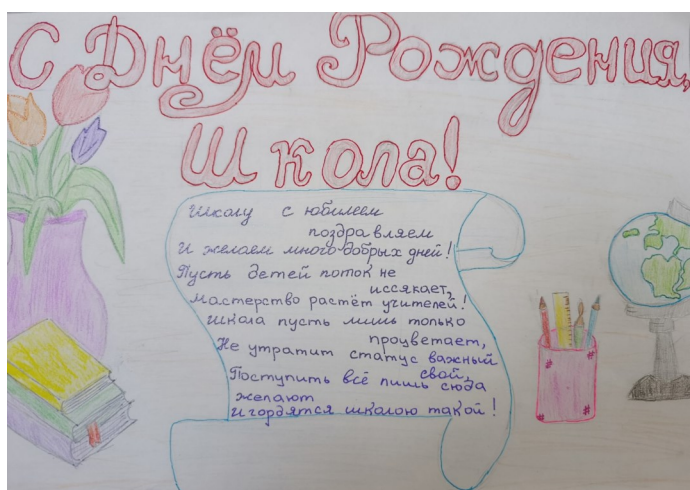 С Днём Рождения,
Школа!
Школу с юбилеем
поздравляем
И желаем много добрых дней!
Пусть детей поток не
иссякает,
Мастерство растёт учителей!
Школа пусть лишь только
процветает,
Не утратит статус важный
свой,
Поступить всё лишь сюда
желают
И гордятся школою такой!